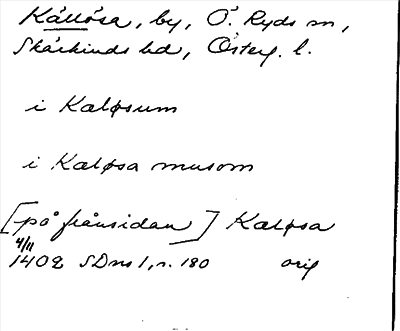 Källösa, by, Ö. Ryds sn,
Skärkinds hd, Österg. l.
i Kaløsum
i Kaløsa musom
[på frånsidan] Kaløsa
4/11
1402 SDns 1, s. 180 orig